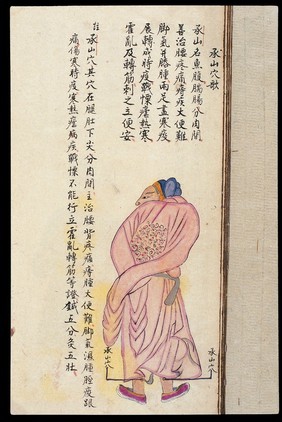 承山穴歌
承山名魚腹腨腸分肉間
善治腰疼痛痔疾大便難
脚氣并膝腫兩足盡寒疫
展轉成時疫戰慄瘧熱寒
霍亂及轉筋刺之立便安
註承山穴其穴在腿肚下尖分肉間主治腰背疼痛痔腫大便難脚氣濕腫脛疫跟
痛傷寒時疫寒熱瘧病戰慄不能行立霍亂轉筋等證鍼五分灸五壯
承山穴
承山穴